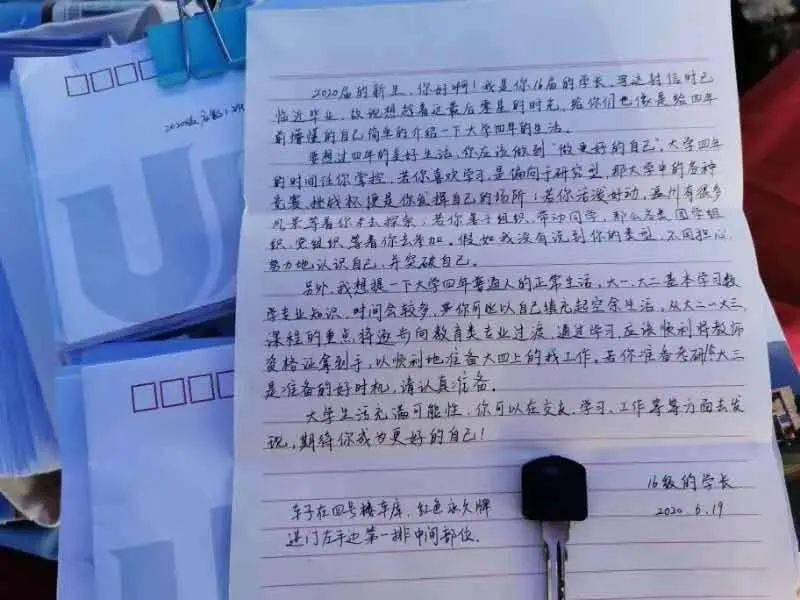 2020届的新生,你好啊!我是你16届的学长,写这封信时已
临近毕业,故我想趁着这最后零星的时光,给你们也像是给四年
前懵懂的自己简单的介绍一下大学四年的生活。
要想过四年的美好生活,你应该做到“做更好的自己”,大学四年
的时间任你掌控,若你喜欢学习,是偏向于研究型,那大学中的各种
竞赛、挑战杯便是你发挥自己的场所;若你活泼好动,温州有很多
风景等着你去探索;若你善于组织、带动同学,那么各类团学组
织、党组织等着你去参加。假如我没有说到你的类型,不用担心,
努力地认识自己,并突破自己。
另外,我想提一下大学四年普通人的正常生活,大一、大二基本学习数
学专业知识,时间会较多,你可以自己填充起空余生活,从大二~大三,
课程的重点将逐步向教育类专业过渡,通过学习,应该顺利将教师
资格证拿到手,以顺利地准备大四上的找工作。若你准备考研,大三
是准备的好时机,请认真准备。
大学生活充满可能性,你可以在交友、学习、工作等等方面去发
现,期待你成为更好的自己!
16级的学长
2020.6.19
车子在四号楼车库,红色永久牌
进门左手边第一排中间部位.